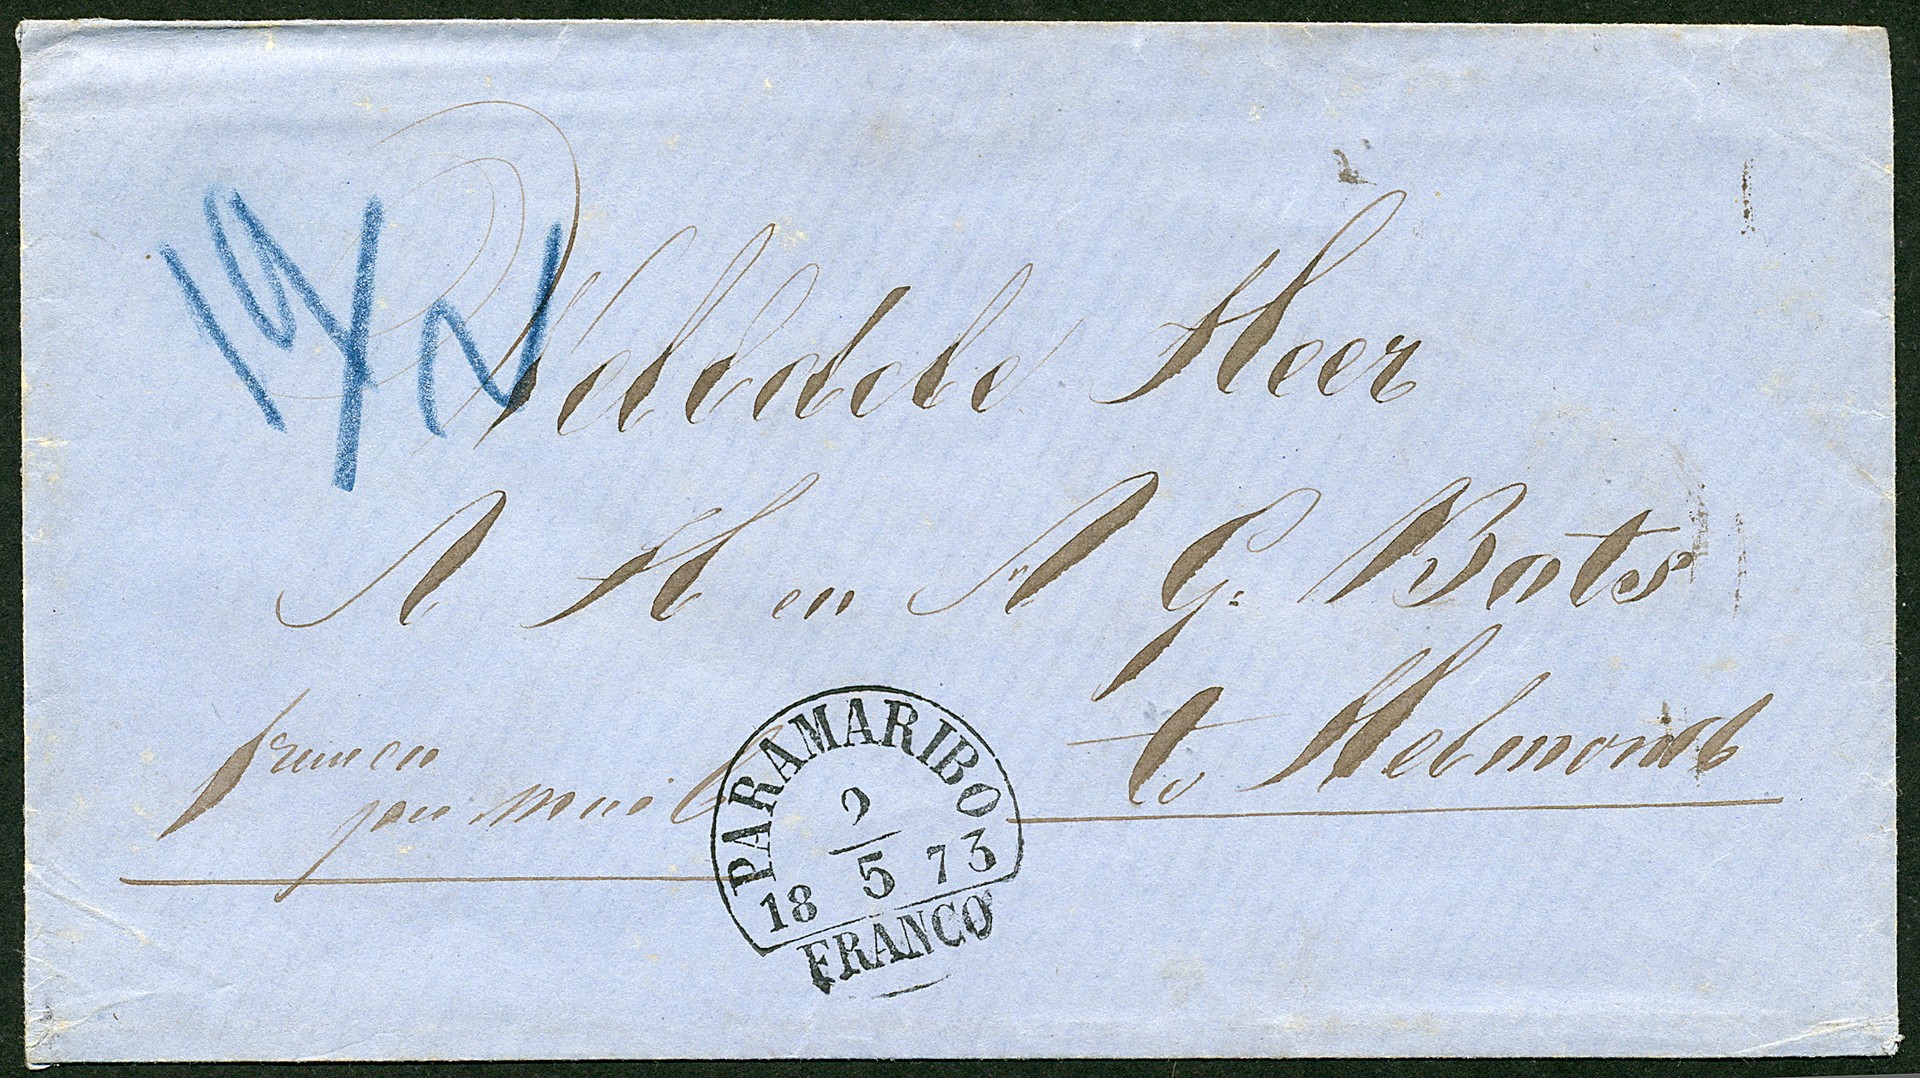 WelEdele Heer
A H en A G: Bots
te Helmond
franco
per mail
PARAMARIBO
9
18 5 73
FRANCO